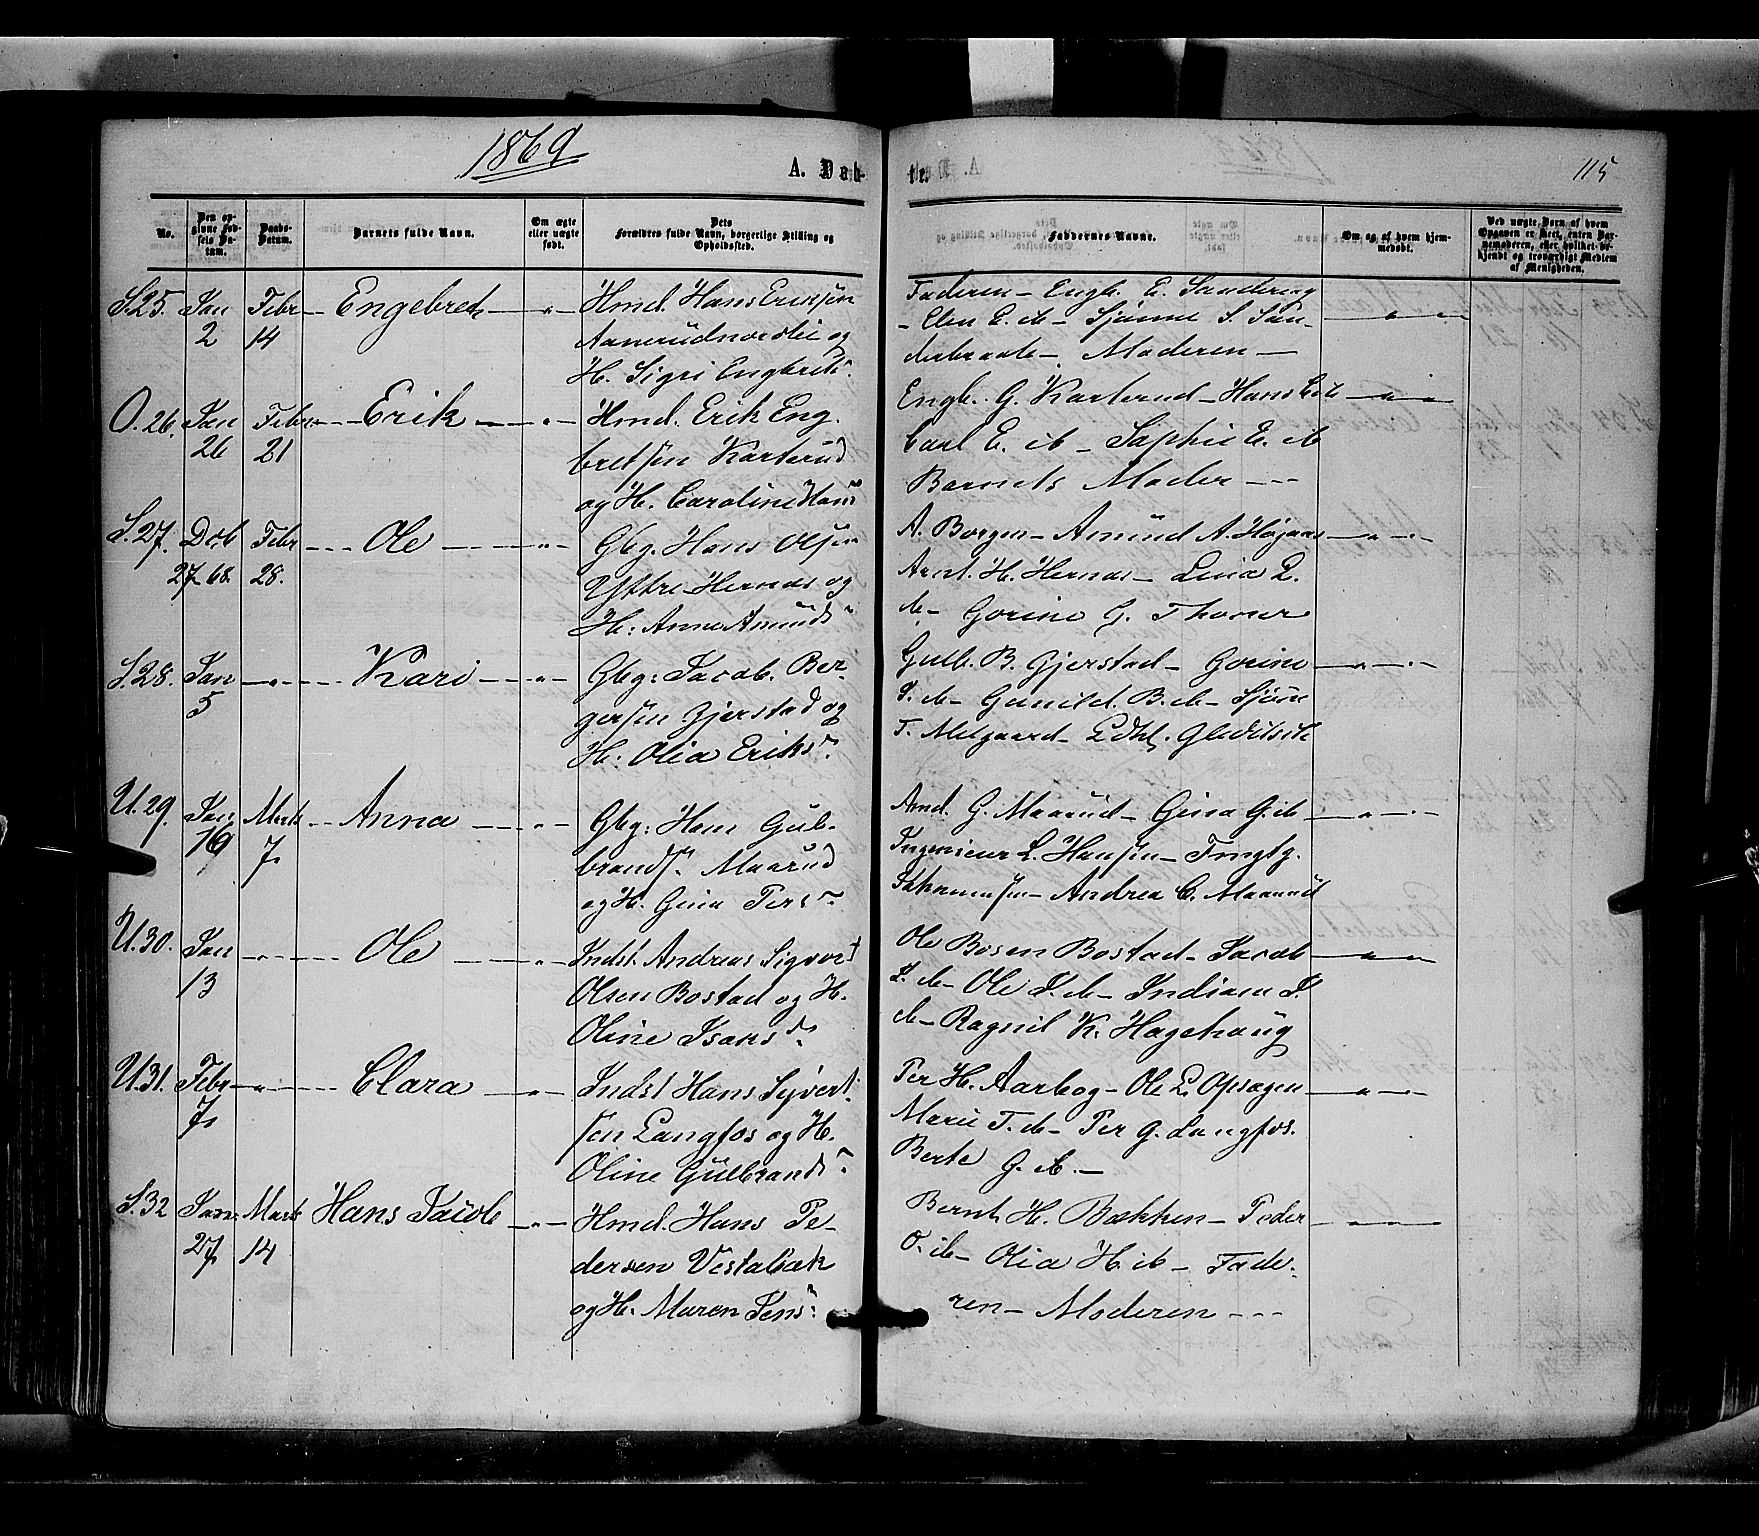 1869
A. Døb-
te.
115
No.
Den opgivne Fødsels Datum.
Daabs-Datum.
Barnets fulde Navn.
Om ægte eller uægte født.
Dets Forældres fulde Navn, borgerlige Stilling og Opholdssted.
Faddernes Navne.
Om og af hvem hjemmedøbt.
Ved uægte Børn af hvem Opgaven er skeet, enten Barnemoderen, eller hvilket bekjendt og troværdigt Medlem af Menigheden.
S.25. Jan 2 Febr 14 Engebret
Hmd. Hans Eriksen
Aanerudnordlie og
H. Sigri Engbrets
Faderen - Engb. E. Sandering
Elen E. ib - S.
Moderen
O.26. Jan 26 Febr 21 Erik
Hmd. Erik Eng
bretsen Karterud
og H. Caroline Hans
Engb. G. Karterud - Hans E. ib
Carl E. ib - Sophie E. ib
Barnets Moder
S.27. Dcb 27 68. Febr 28. Ole
Gbg. Hans Olsen
Yttre Hernæs og
H: Anne Amunds
A. Borgen - Amund A.
Arnt H. Hernæs - Lina L.
ib - Gorine G. Thorer
S.28. Jan 5 Kari
Gbg: Jacob Ber
gersen Gjerstad og
H: Olia Eriks
Gulb. B. Gjerstad - Gorine
ib - Gunild B. ib -
T. Melgaard -
U.29. Jan 19 Marts 7 Anna
Gbg: Hans Gul-
brands. Maarud
og H. Gina Pers
Amd. G. Maarud - Gina G. ib
Ingenieur L. Hansen -
Andrea C. Maarud
U.30. Jan 13 Ole
Indst. Andreas Sigvart
Olsen Bostad og H.
Oline Isaks
Ole Bosen Bostad - Jacob
I. ib - Ole I. ib - Indiane I.
ib - Ragnil K. Hagehaug
U.31. Febr 7 Clara
Indst Hans Syvert
sen Langfos og H.
Oline Gulbrands
Per H. Aarbog - Ole L. Opsagen
Marie T. ib - Per G. Langfos.
Berte G. ib. -
S.32 Jan: 27 Marts 14 Hans Jacob
Hmd. Hans Pe-
dersen Vestabæk
og H: Maren Jens:
Bernt H. Bækken - Peder
O. ib - Olia H. ib - Fade-
ren - Moderen